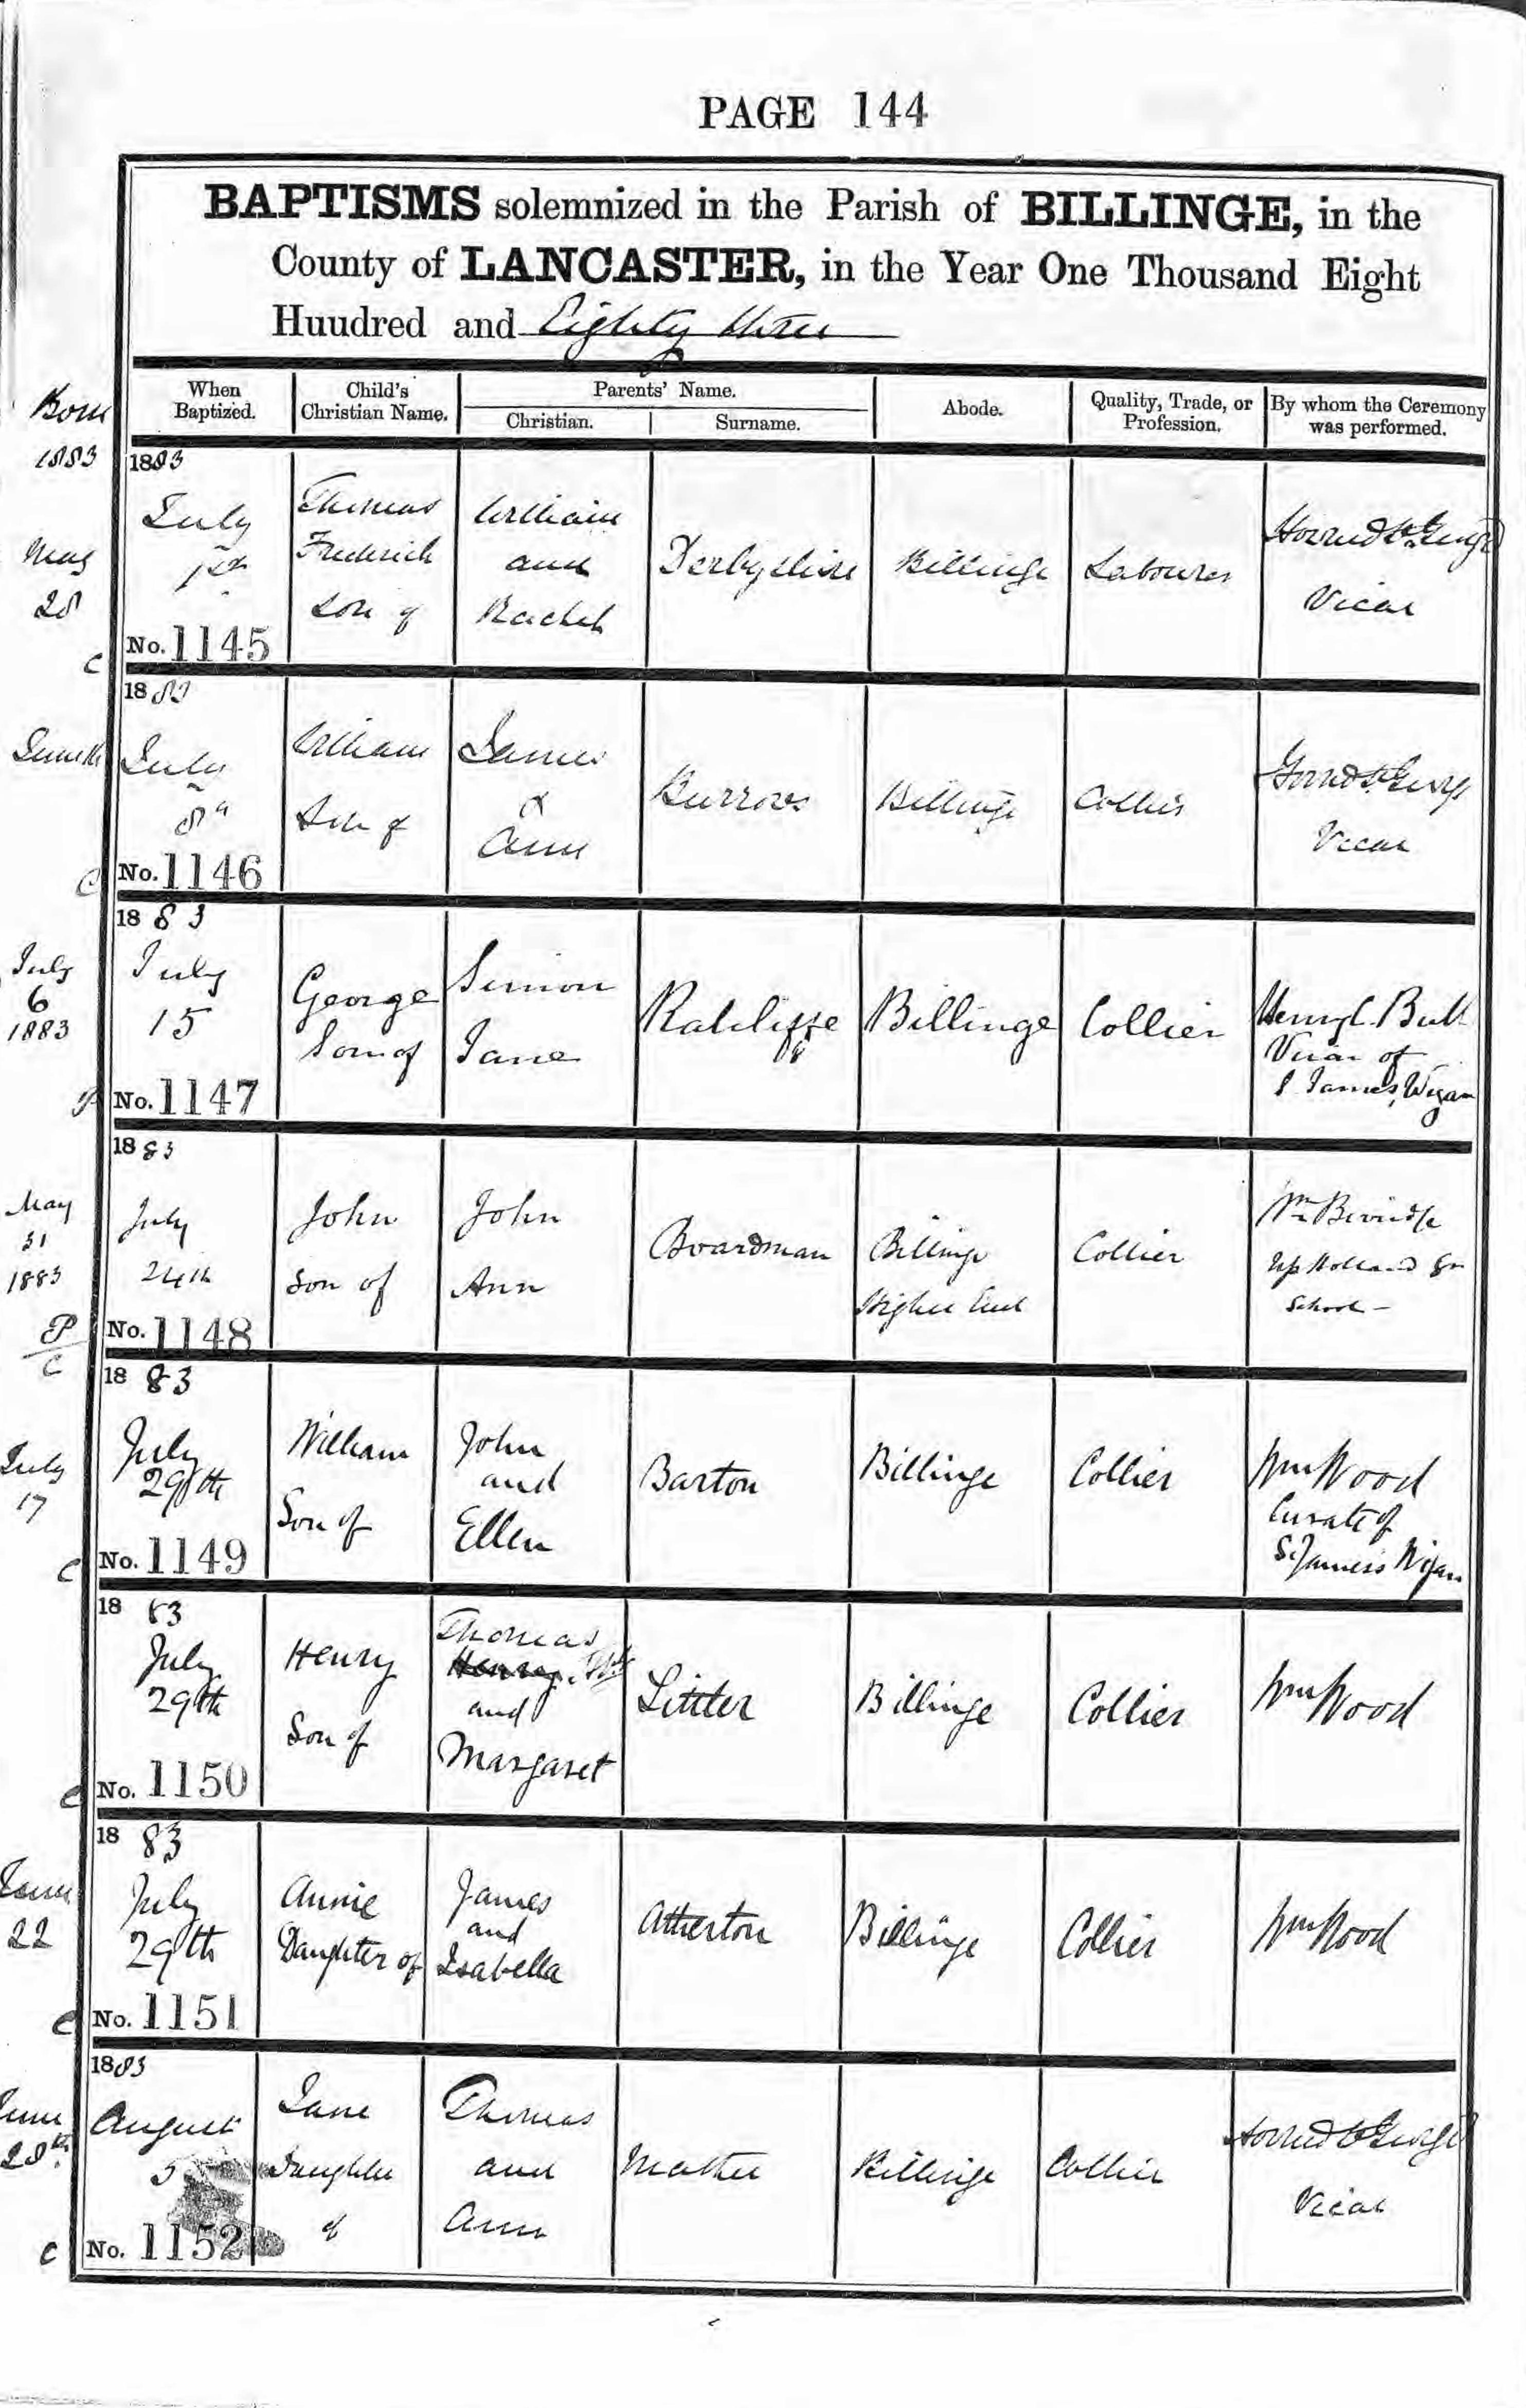 PAGE 144
BAPTISMS solemnized in the Parish of BILLINGE, in the
County of LANCASTER, in the Year One Thousand Eight
Huudred and Eighty three
Born
1883
When Baptized.
Child's Christian Name.
Parents' Name.
Christian.
Surname.
Abode.
Quality, Trade, or Profession.
By whom the Ceremony was performed.
May
28
C
1883
July
1st
No. 1145
Thomas
Frederick
Son of
William
and
Rachel
Derbyshire
Billinge
Labourer
Vicar
C
1883
July
8th
No. 1146
William
Son of
James
&
Ann
Burrows
Billinge
Collier
Vicar
July
6
1883
P
1883
July
15
No. 1147
George
Son of
Simon
Jane
Ratcliffe
Billinge
Collier
Henry C. Bull
Vicar of
S James, Wigan
May
31
1883
P
C
1883
July
24th
No. 1148
John
Son of
John
Ann
Boardman
Billinge
Higher End
Collier
Up Holland Gr
School -
July
17
C
1883
July
29th
No. 1149
William
Son of
John
and
Ellen
Barton
Billinge
Collier
Wm Wood
Curate of
S. James's Wigan
C
1883
July
29th
No. 1150
Henry
Son of
Thomas
Henry
and
Margaret
Littler
Billinge
Collier
Wm Wood
June
22
C
1883
July
29th
No. 1151
Annie
Daughter of
James
and
Isabella
Atherton
Billinge
Collier
Wm Wood
June
28th
C
1883
August
5
No. 1152
Jane
Daughter
of
Thomas
and
Ann
Mather
Billinge
Collier
Vicar